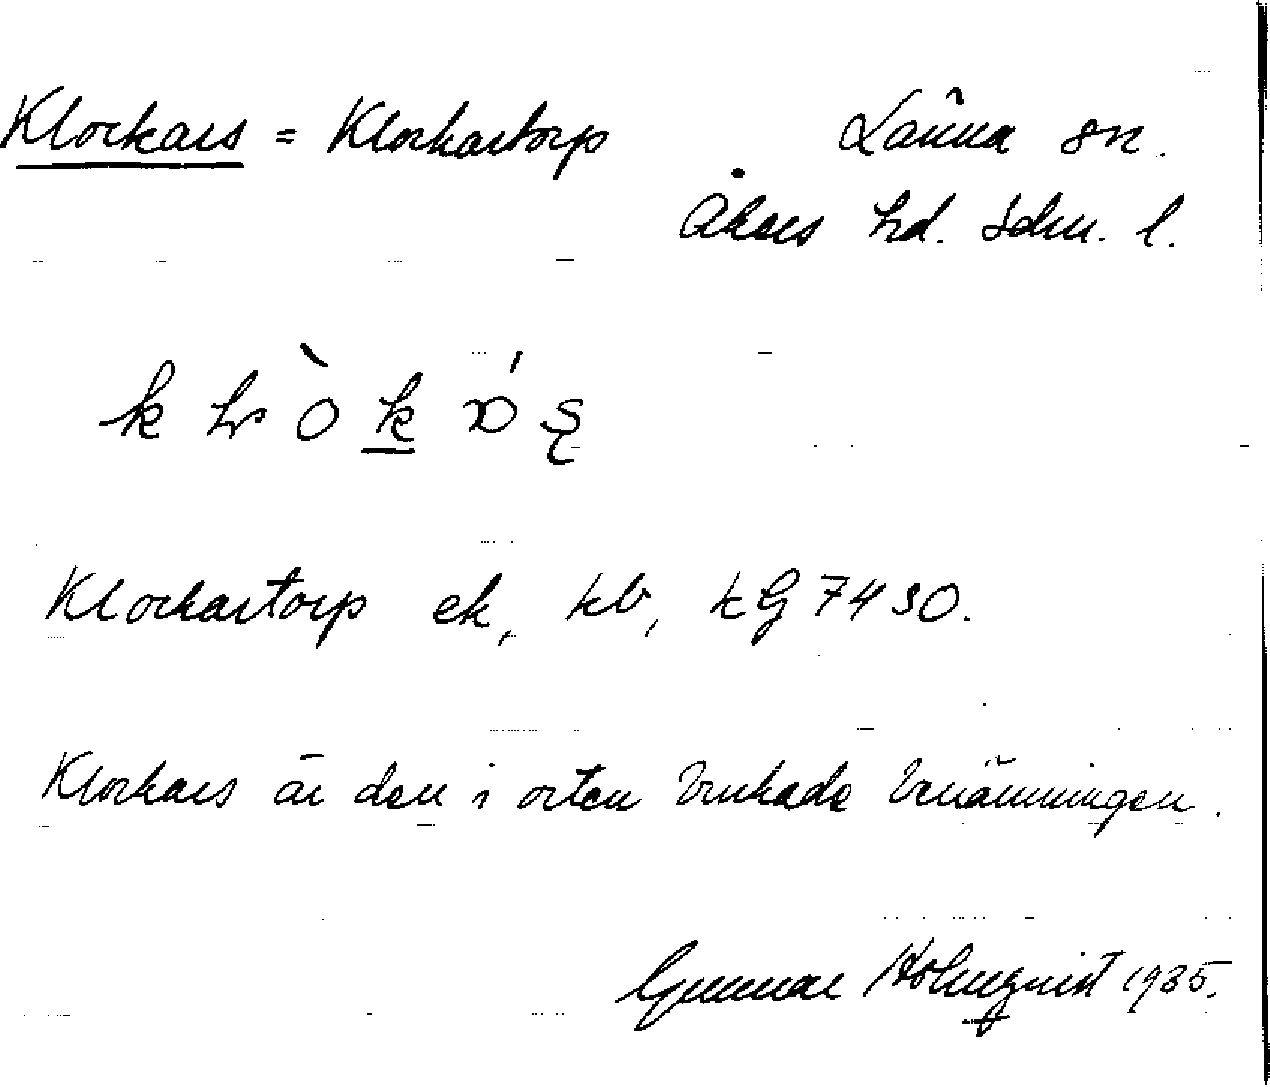 Klockars = Klockartorp Länna sn.
Åkers hd. Södm. l.
Klockartorp ek, kb, kG 7430.
Klockars är den i orten brukade benämningen.
Gunnar Holmqvist 1935.